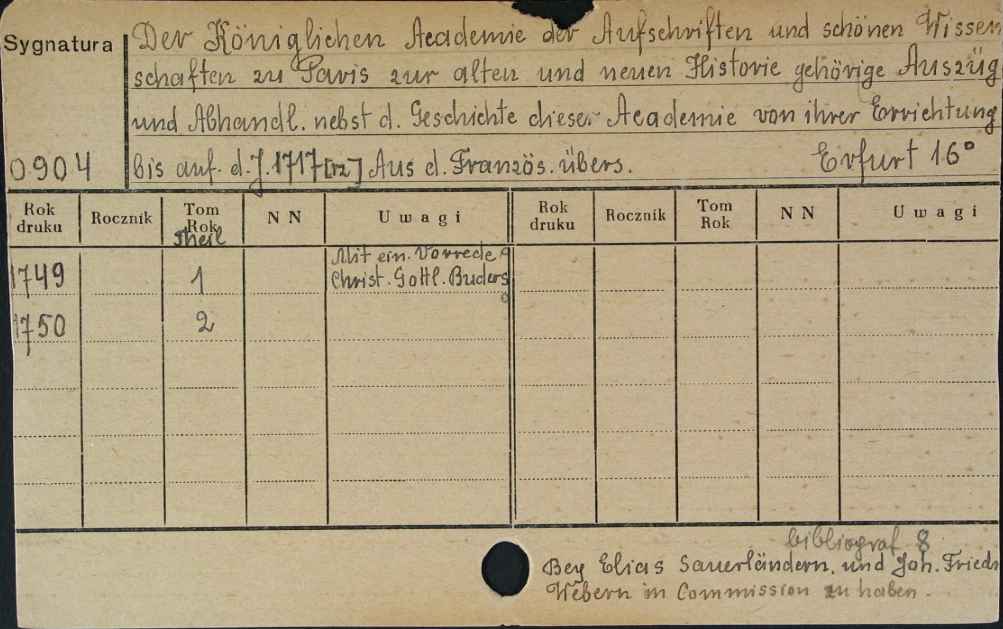 Sygnatura Der Königlichen Academie der Aufschriften und schönen Wissen
schaften zu Paris zur alten und neuen Historie gehörige Auszüg
und Abhandl. nebst d. Geschichte dieser Academie von ihrer Errichtung
0904 bis auf. d. J. 1717 [rz] Aus d. Französ. übers. Erfurt 16°
Rok druku Rocznik Tom Rok Theil NN Uwagi Rok druku Rocznik Tom Rok NN Uwagi
Mit ein. Vorrede
1749 1 Christ. Gottl. Buders
1750 2
bibliograf 8
Bey Elias Sauerländern. und Joh. Friedr
Webern in Commission zu haben.